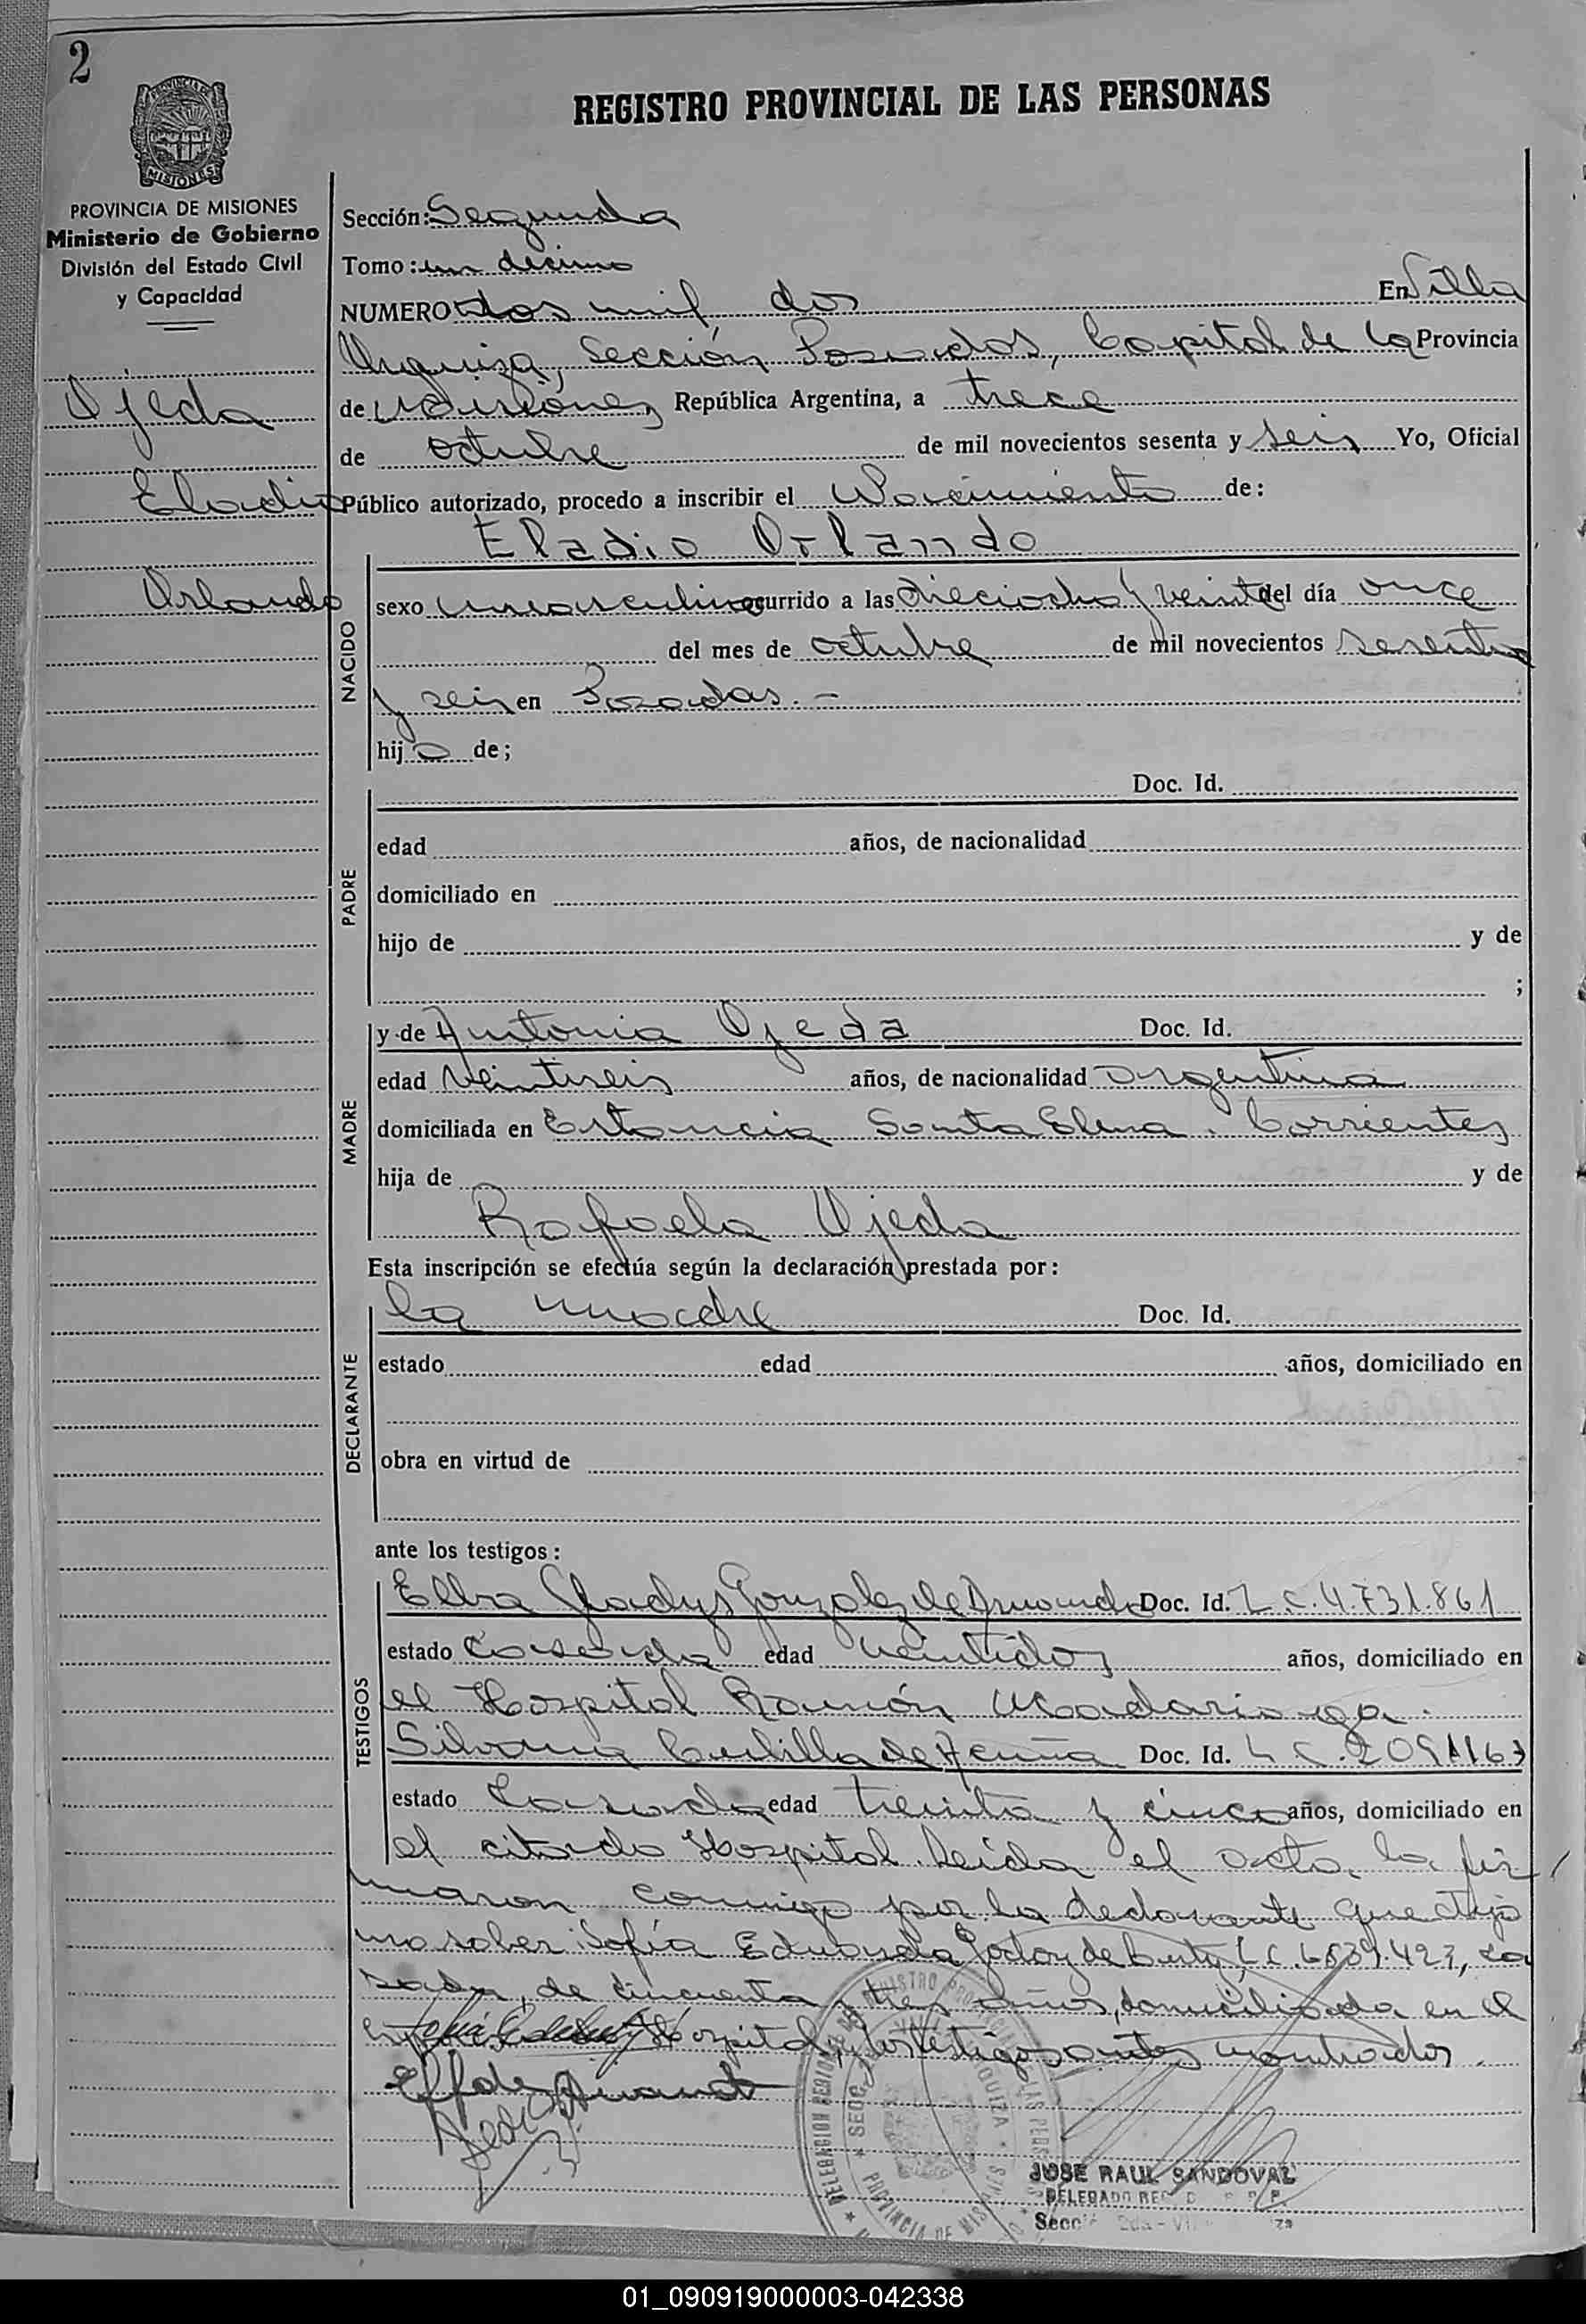 2
PROVINCIA DE MISIONES
MISIONES
PROVINCIA DE MISIONES
Ministerio de Gobierno
División del Estado Civil
y Capacidad
Ojeda
Eladio
Orlando
REGISTRO PROVINCIAL DE LAS PERSONAS
Sección: Segunda
Tomo: un décimo
NUMERO dos mil dos En Villa
Urquiza, Sección Posadas, Capital de la Provincia
de Misiones República Argentina, a trece
de octubre de mil novecientos sesenta y seis Yo, Oficial
Público autorizado, procedo a inscribir el Nacimiento de:
Eladio Orlando
NACIDO
sexo masculino ocurrido a las dieciocho y veinte del día once
del mes de octubre de mil novecientos sesenta
y seis en Posadas. -
hijo de;
PADRE
Doc. Id.
edad años, de nacionalidad
domiciliado en
hijo de y de
;
MADRE
y de Antonia Ojeda Doc. Id.
edad veintiseis años, de nacionalidad argentina
domiciliada en Estancia Santa Elena. Corrientes
hija de y de
Rafaela Ojeda
Esta inscripción se efectúa según la declaración prestada por:
DECLARANTE
la madre Doc. Id.
estado edad años, domiciliado en
obra en virtud de
ante los testigos:
TESTIGOS
Elba Gladys Gonzalez de Doc. Id. L.C. 4.731.861
estado casada edad veintidos años, domiciliado en
el Hospital Ramón Madariaga.
Silvana de Acuña Doc. Id. L C. 2091163
estado Casada edad treinta y cinco años, domiciliado en
el citado Hospital. Leída el acta, la fir
maron conmigo por la declarante que dijo
no saber Sofía Eduarda Godoy de L.C. 6839.423, ca
sada, de cincuenta y tres años, domiciliada en el
Hospital, y los testigos antes nombrados.
JOSE RAUL SANDOVAL
DELEGADO REG
Secció 2da - Vi za
01_090919000003-042338